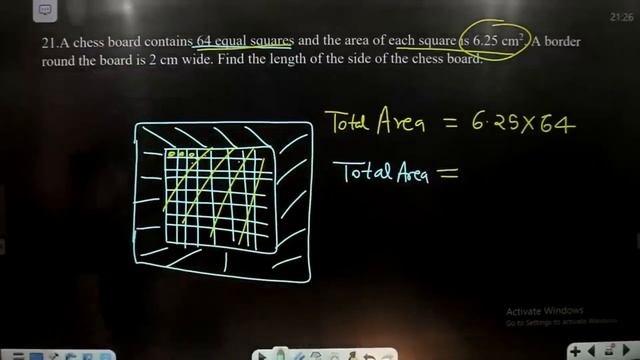 21:26
21.A chess board contains 64 equal squares and the area of each square is 6.25 cm². A border
round the board is 2 cm wide. Find the length of the side of the chess board.
Total Area = 6.25×64
Total Area =
Activate Windows
Go to Settings to activate Windows.